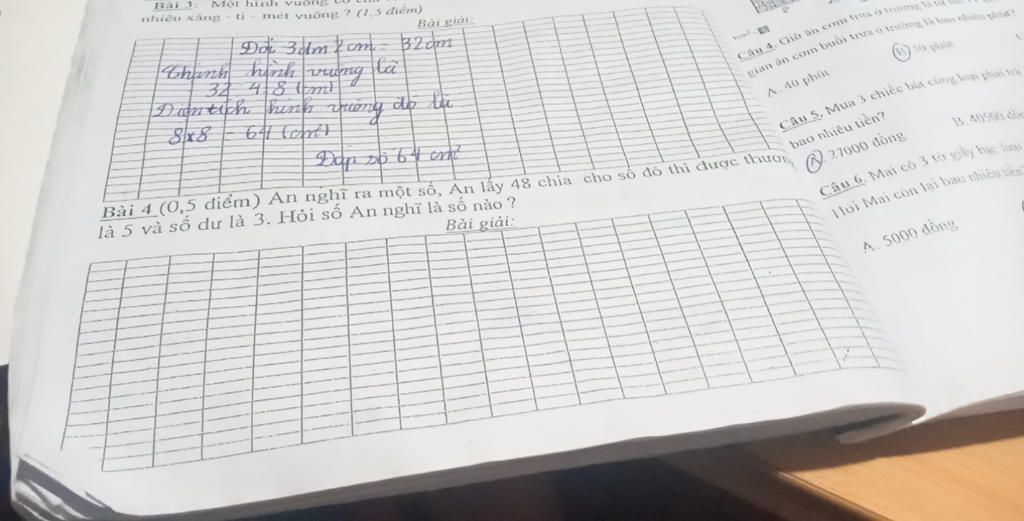 Bài 3: Một hình vuông có chu
nhiêu xăng - ti - mét vuông ? (1,5 điểm)
Bài giải:
Đổi 3dm 2cm = 32cm
hình vuông là
32 4 8 (cm)
Diện tích hình vuông đó là
8x8 = 64 (cm²)
Đáp số 64 cm²
Bài 4 (0,5 điểm) An nghĩ ra một số, An lấy 48 chia cho số đó thì được thươn
là 5 và số dư là 3. Hỏi số An nghĩ là số nào ?
Bài giải:
Câu 4. Giờ ăn cơm trưa ở trường là từ
gian ăn cơm buổi trưa ở trường là bao nhiêu phút?
A. 40 phút
B 30 phút
Câu 5. Mua 3 chiếc bút cùng loại phải trả
bao nhiêu tiền?
A 27000 đồng
B. 40500 đồn
Câu 6. Mai có 3 tờ giấy bạc loại
Hỏi Mai còn lại bao nhiêu tiền
A. 5000 đồng